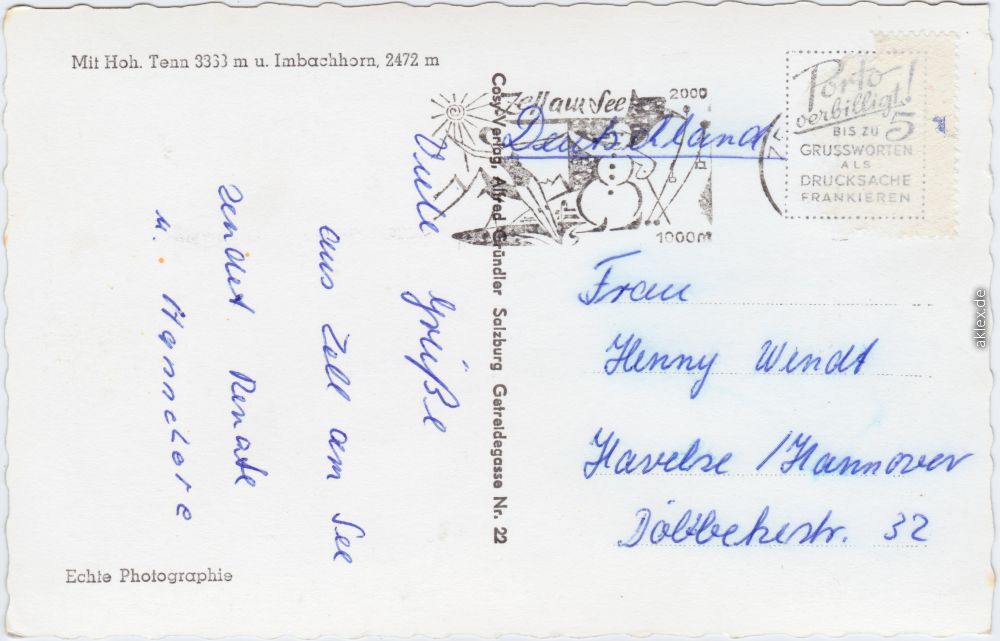 Mit Hoh. Tenn 3333 m u. Imbachhorn, 2472 m
Viele Grüße
aus Zell am See
sendet Renate
u. Hannchere
Echte Photographie
Cosy-Verlag, Alfred Gründler Salzburg Getreidegasse Nr. 22
Zell am See
2000
1000m
Porto
verbilligt!
BIS ZU 5
GRUSSWORTEN
ALS
DRUCKSACHE
FRANKIEREN
Deutschland
Frau
Henny Wendt
Havelse / Hannover
32
aklex.de